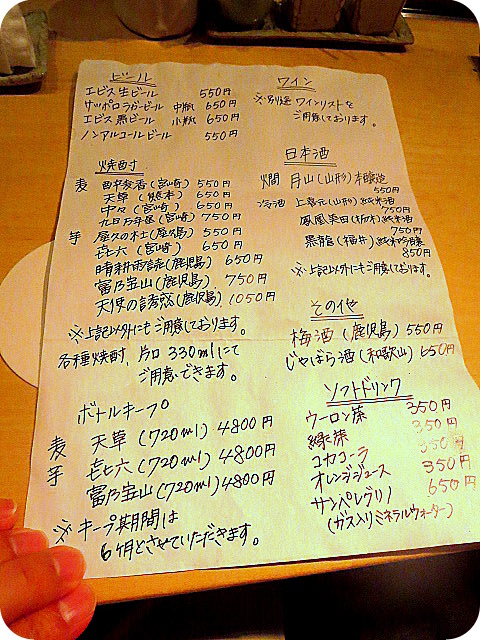 ビール
エビス生ビール 550円
サッポロラガービール 中瓶 650円
エビス黒ビール 小瓶 650円
ノンアルコールビール 550円
焼酎
麦 (宮崎) 550円
天草 (熊本) 650円
中々 (宮崎) 650円
九四方井屋 (宮崎) 750円
芋 屋久の杜 (屋久島) 550円
㐂六 (宮崎) 650円
晴耕雨読 (鹿児島) 650円
富乃宝山 (鹿児島) 750円
天使の誘惑 (鹿児島) 1050円
※上記以外にもご用意しております。
各種焼酎、片口330mlにて
ご用意できます。
ボトルキープ
麦 天草 (720ml) 4800円
芋 㐂六 (720ml) 4800円
富乃宝山 (720ml) 4800円
※キープ期間は
6ヶ月とさせていただきます。
ワイン
※別途ワインリストを
ご用意しております。
日本酒
燗 月山 (山形) 本醸造
550円
冷酒 上喜元 (山形) 純米酒
750円
鳳凰美田 (栃木) 純米酒
750円
黒龍 (福井) 純米吟醸
850円
※上記以外にもご用意しております。
その他
梅酒 (鹿児島) 550円
じゃばら酒 (和歌山) 650円
ソフトドリンク
ウーロン茶 350円
緑茶 350円
コカコーラ 350円
オレンジジュース 350円
サンペレグリノ 650円
(ガス入りミネラルウォーター)